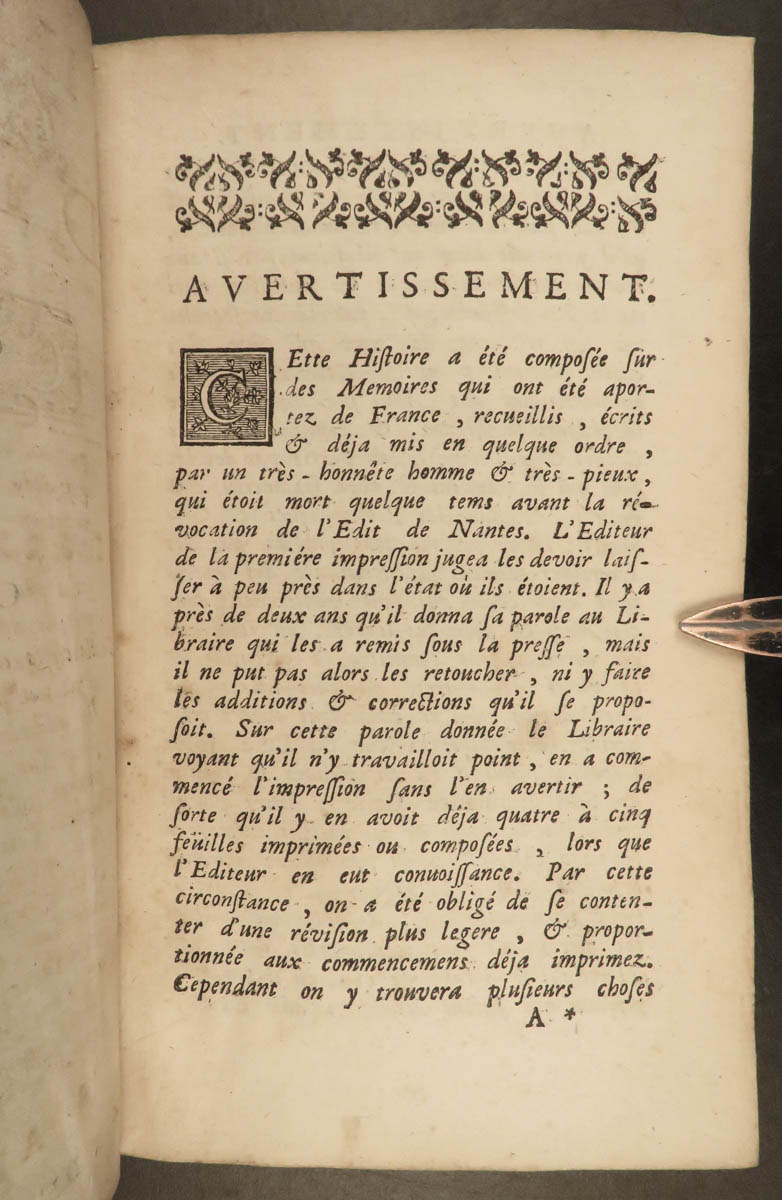 AVERTISSEMENT.
CEtte Hiſtoire a été compoſée ſur
des Memoires qui ont été apor-
tez de France , recueillis , écrits
& déja mis en quelque ordre ,
par un très-honnête homme & très-pieux,
qui étoit mort quelque tems avant la ré-
vocation de l'Edit de Nantes. L'Editeur
de la premiére impreſſion jugea les devoir laiſ-
ſer à peu près dans l'état où ils étoient. Il y a
près de deux ans qu'il donna ſa parole au Li-
braire qui les a remis ſous la preſſe , mais
il ne put pas alors les retoucher , ni y faire
les additions & corrections qu'il ſe propo-
ſoit. Sur cette parole donnée le Libraire
voyant qu'il n'y travailloit point , en a com-
mencé l'impreſſion ſans l'en avertir ; de
ſorte qu'il y en avoit déja quatre à cinq
feüilles imprimées ou compoſées , lors que
l'Editeur en eut connoiſſance. Par cette
circonſtance , on a été obligé de ſe conten-
ter d'une réviſion plus legere , & propor-
tionnée aux commencemens déja imprimez.
Cependant on y trouvera pluſieurs choſes
A *